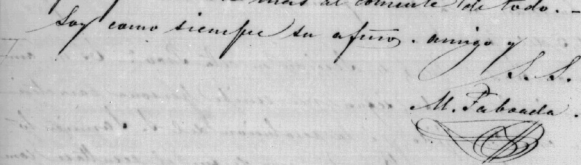 mas al corriente de todo. —
Soy como siempre su afmo. amigo y
S. S.
M. Taboada.